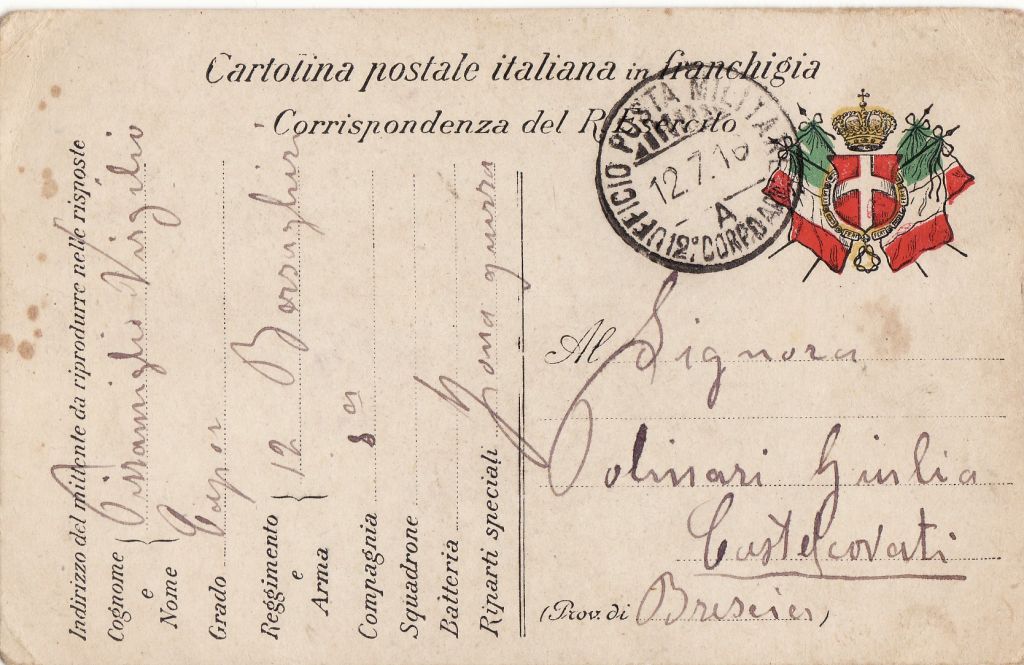 Cartolina postale italiana in franchigia
Corrispondenza del R. Esercito
UFFICIO POSTA MILITARE
12.7.16
A
12° CORPO D'ARM
Indirizzo del mittente da riprodurre nelle risposte
Cognome e Nome Virgilio
Grado Capor
Reggimento e Arma 12 Bersaglieri
Compagnia 8a
Squadrone
Batteria
Riparti speciali Zona guerra
Al Signora
Polinari Giulia
Castelcovati
(Prov. di Brescia)